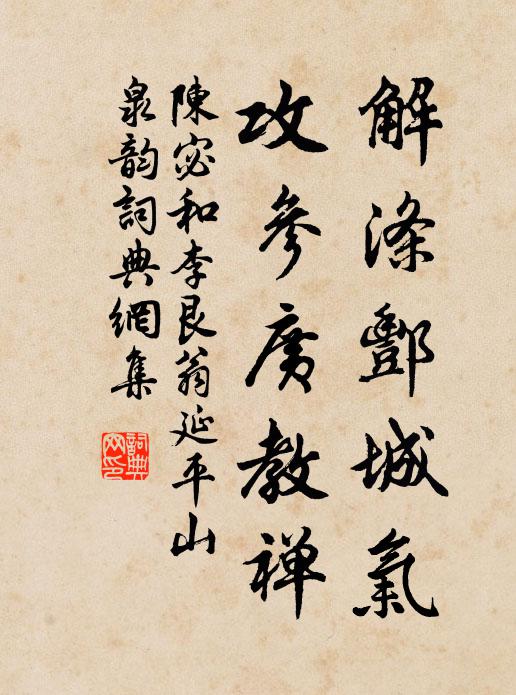 解滌酆城氣
攻參廣教禅
陳宓和李艮翁延平山
泉韵詞典網集
詞典
网印